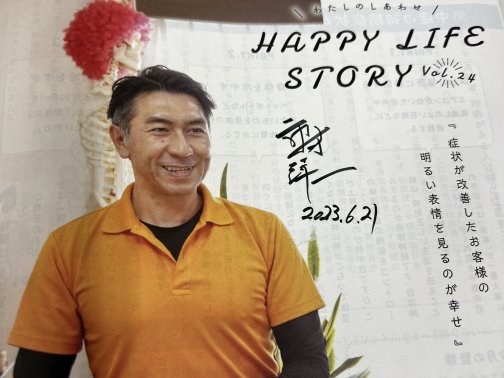 わたしのしあわせ
HAPPY LIFE
STORY Vol.24
2023.6.21
『症状が改善したお客様の
明るい表情を見るのが幸せ』